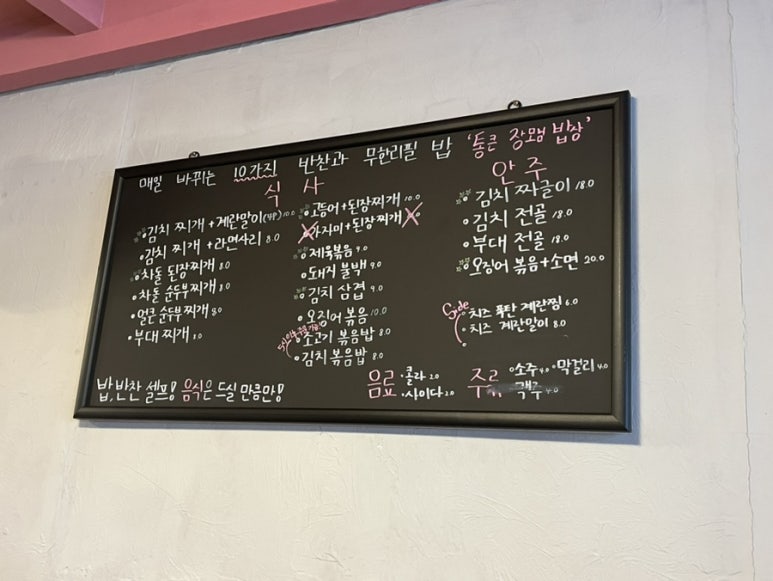 매일 바뀌는 10가지 반찬과 무한리필 밥 '통큰 장모님 밥상'
식 사
김치 찌개 + 계란말이(4P) 10.0
김치 찌개 + 라면사리 8.0
차돌 된장찌개 8.0
차돌 순두부찌개 8.0
얼큰 순두부 찌개 8.0
부대 찌개 8.0
고등어 + 된장찌개 10.0
가자미 + 된장찌개
제육볶음 9.0
돼지 불백 9.0
김치 삼겹 9.0
오징어 볶음 10.0
소고기 볶음밥 8.0
김치 볶음밥 8.0
안 주
김치 짜글이 18.0
김치 전골 18.0
부대 전골 18.0
오징어 볶음 + 소면 20.0
Side
치즈 폭탄 계란찜 6.0
치즈 계란말이 8.0
밥, 반찬 셀프! 음식은 드실 만큼만!
음료
콜라 2.0
사이다 2.0
주류
소주 4.0 막걸리 4.0
맥주 4.0